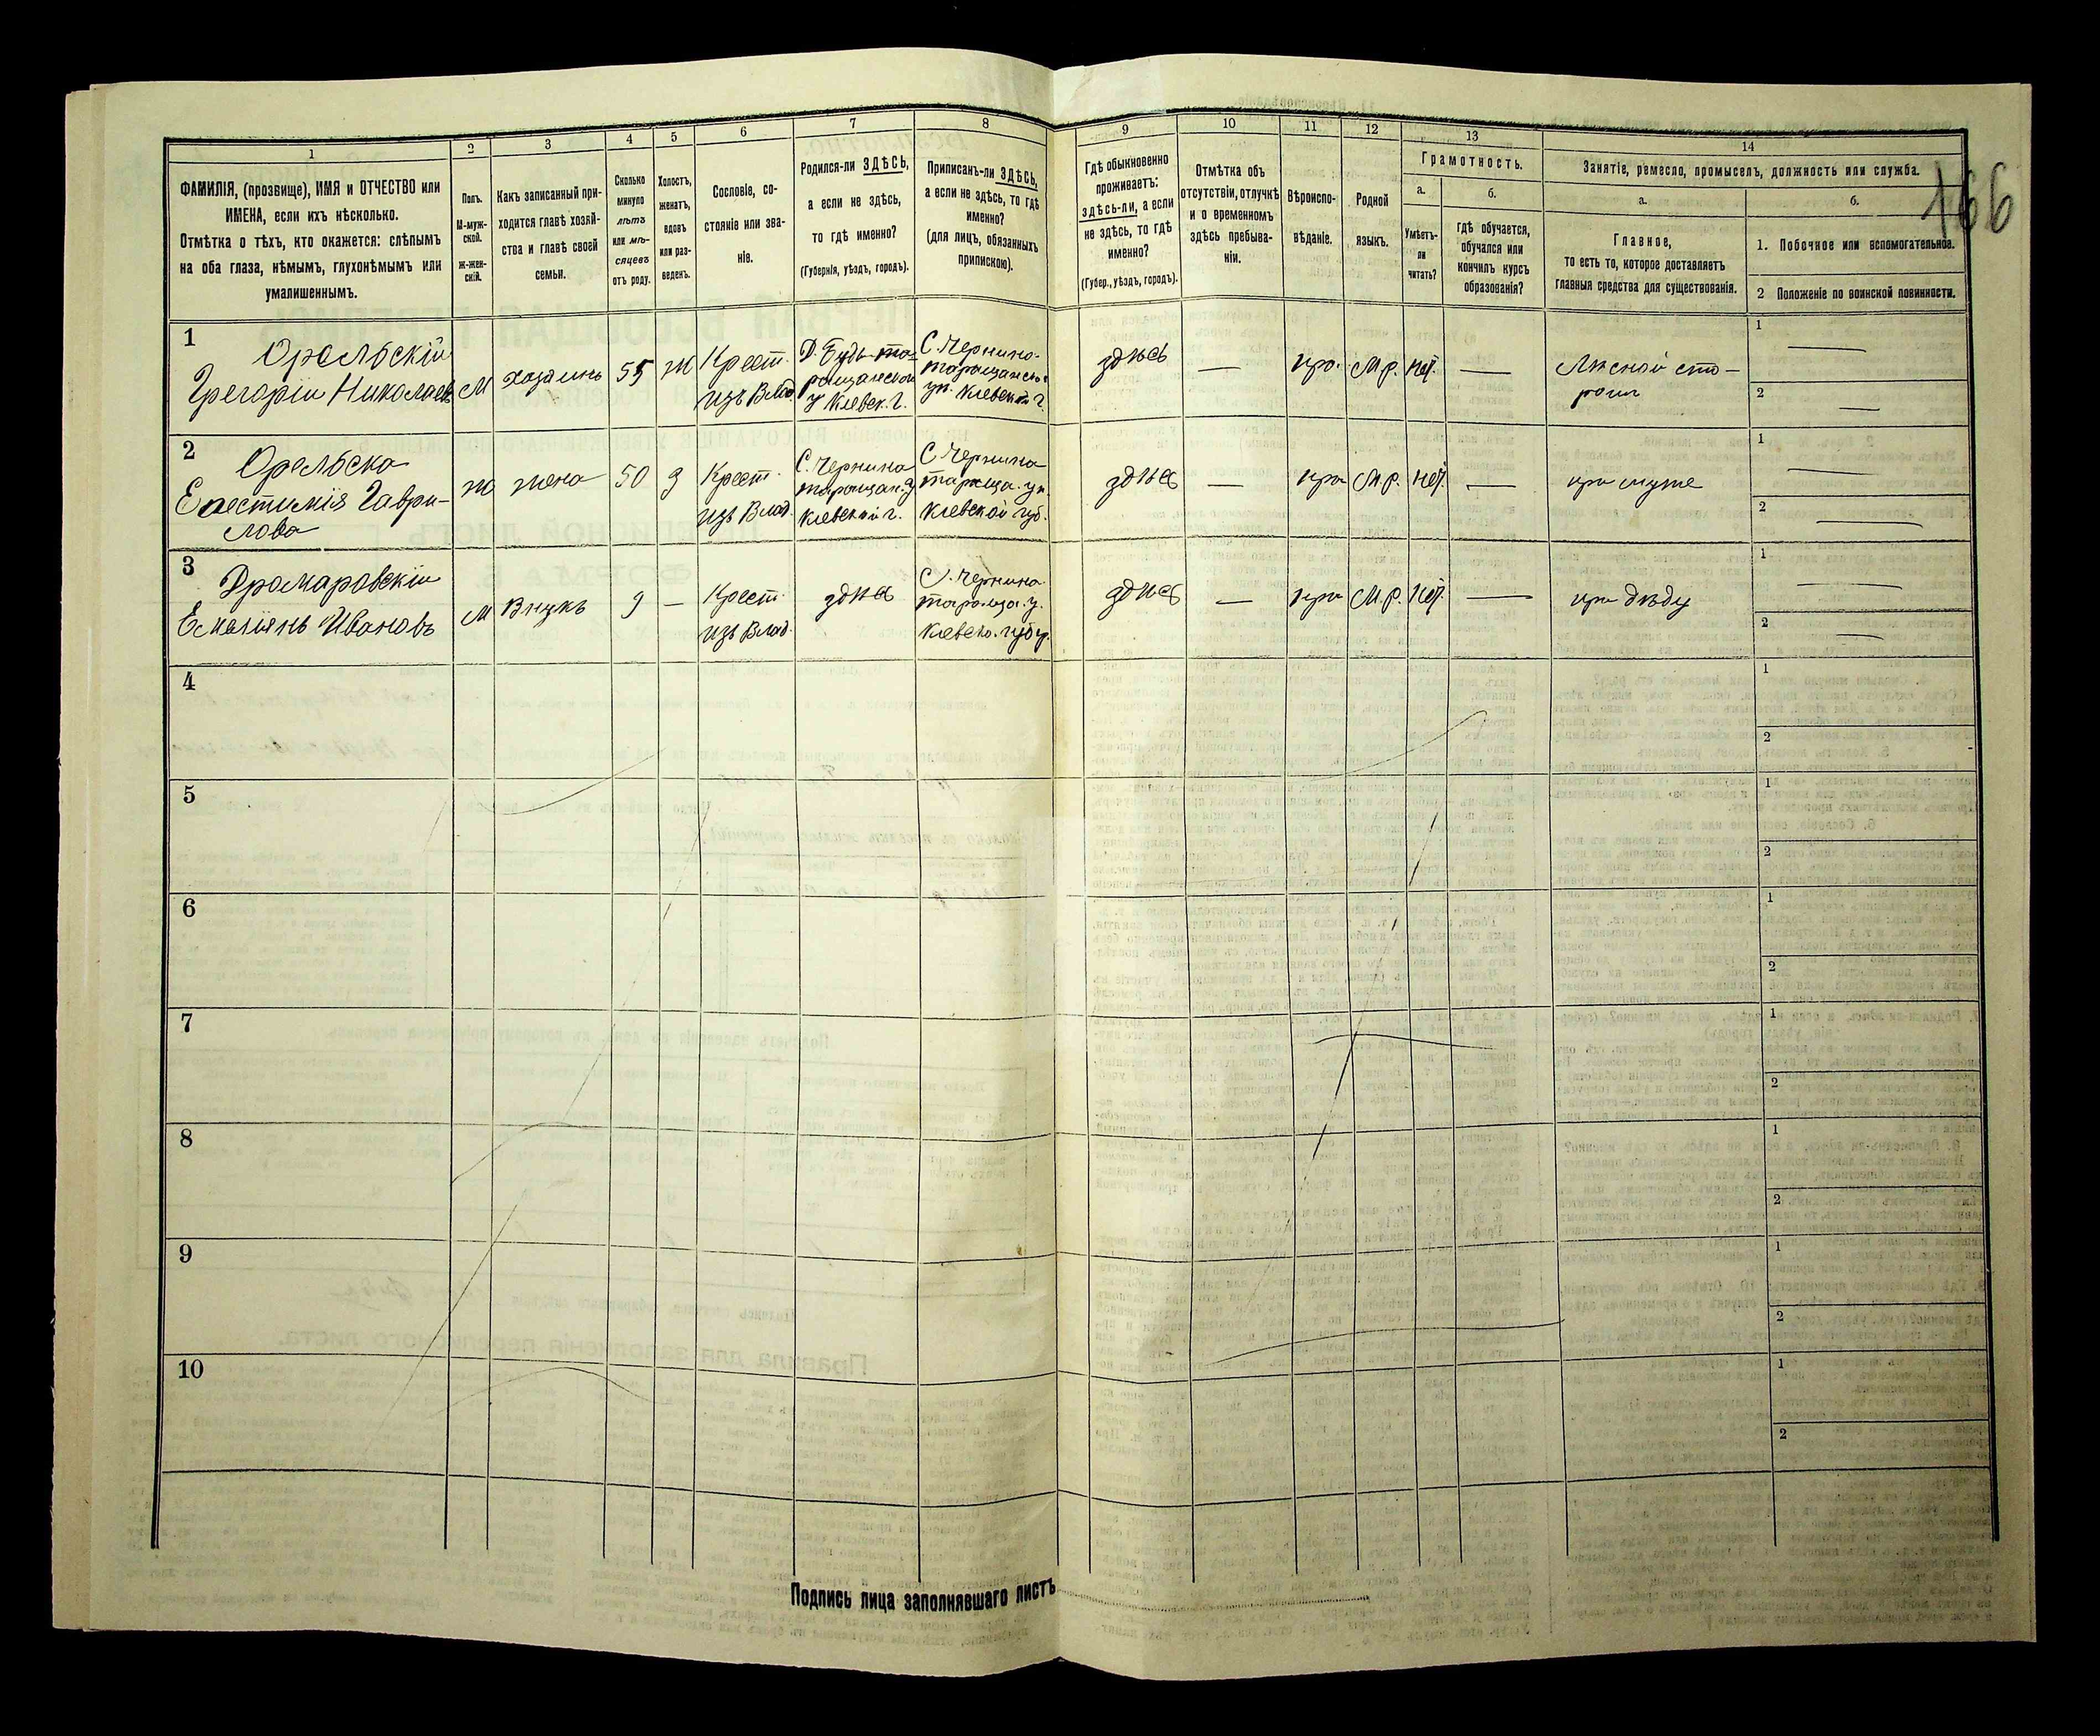 166
1
2
3
4
5
6
7
8
9
10
11
12
13
14
ФАМИЛІЯ, (прозвище), ИМЯ и ОТЧЕСТВО или
ИМЕНА, если ихъ нѣсколько.
Отмѣтка о тѣхъ, кто окажется: слѣпымъ
на оба глаза, нѣмымъ, глухонѣмымъ или
умалишеннымъ.
Полъ.
М-муж-
ской.
ж-жен-
скій.
Какъ записанный при-
ходится главѣ хозяй-
ства и главѣ своей
семьи.
Сколько
минуло
лѣтъ
или мѣ-
сяцевъ
отъ роду.
Холостъ,
женатъ,
вдовъ
или раз-
веденъ.
Сословіе, со-
стояніе или зва-
ніе.
Родился-ли ЗДѢСЬ,
а если не здѣсь,
то гдѣ именно?
(Губернія, уѣздъ, городъ).
Приписанъ-ли ЗДѢСЬ,
а если не здѣсь, то гдѣ
именно?
(для лицъ, обязанныхъ
припискою).
Гдѣ обыкновенно
проживаетъ:
здѣсь-ли, а если
не здѣсь, то гдѣ
именно?
(Губер., уѣздъ, городъ).
Отмѣтка объ
отсутствіи, отлучкѣ
и о временномъ
здѣсь пребыва-
ніи.
Вѣроиспо-
вѣданіе.
Родной
языкъ.
Грамотность.
а.
Умѣетъ-
ли
читать?
б.
гдѣ обучается,
обучался или
кончилъ курсъ
образованія?
Занятіе, ремесло, промыселъ, должность или служба.
а.
Главное,
то есть то, которое доставляетъ
главныя средства для существованія.
б.
1. Побочное или вспомогательное.
2 Положеніе по воинской повинности.
1
Орельскій
Григорій Николаев
М
хозяинъ
55
ж
Крест.
изъ Влад.
Д. Буда та-
ращанской
у Кіевск. г.
С. Чернино-
таращанск.
уѣ. Кіевской г.
здѣсь
—
пра.
М.р.
нѣт.
—
Лѣсной сто-
рож
1 —
2 —
2
Орельска
Гаври-
лова
ж
жена
50
з
Крест.
изъ Влад.
С. Чернина
таращан. у.
Кіевской г.
С. Чернина
тараща. уѣ.
Кіевской губ.
здѣсь
—
пра
М.р.
нѣт.
—
при муже
1 —
2 —
3
Емельянъ Ивановъ
М
Внукъ
9
—
Крест.
изъ Влад.
здѣсь
С. Чернина
тараща. у.
Кіевско. губ.
здѣсь
—
пра
М.р.
нѣт.
—
при дѣду
1 —
2 —
4
1
2
5
1
2
6
1
2
7
1
2
8
1
2
9
1
2
10
1
2
Подпись лица заполнявшаго листъ